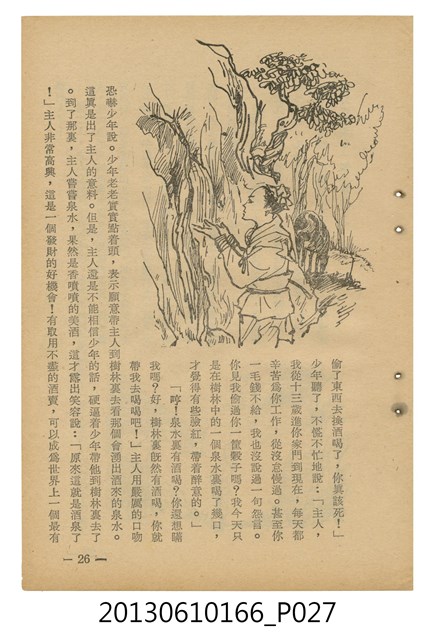 偷了東西去換酒喝了，你眞該死！」
少年聽了，不慌不忙地說：「主人，
我從十三歲進你家門到現在，每天都
辛苦爲你工作，從沒怠慢過。甚至你
一毛錢不給，我也沒說過一句怨言。
你見我偷過你一筐穀子嗎？我今天只
是在樹林中的一個泉水裏喝了幾口，
才覺得有些臉紅，帶着醉意的。」
「哼！泉水裏有酒喝？你還想瞞
我嗎？好，樹林裏旣然有酒喝，你就
帶我去喝喝吧！」主人用嚴厲的口吻
恐嚇少年說。少年老老實實點着頭，表示願意帶主人到樹林裏去看那個會湧出酒來的泉水。
這眞是出了主人的意料。但是，主人還是不能相信少年的話，硬逼着少年帶他到樹林裏去了
。到了那裏，主人嘗嘗泉水，果然是香噴噴的美酒，這才露出笑容說：「原來這就是酒泉了
！」主人非常高興，這是一個發財的好機會！有取用不盡的酒賣，可以成爲世界上一個最有
— 26 —
20130610166_P027